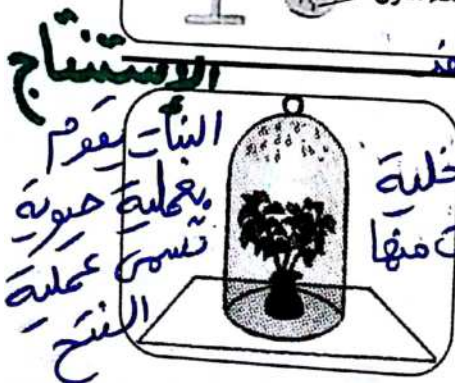 الاستنتاج
النبات يقوم
بعملية حيوية
تسمى عملية
النتح
منها